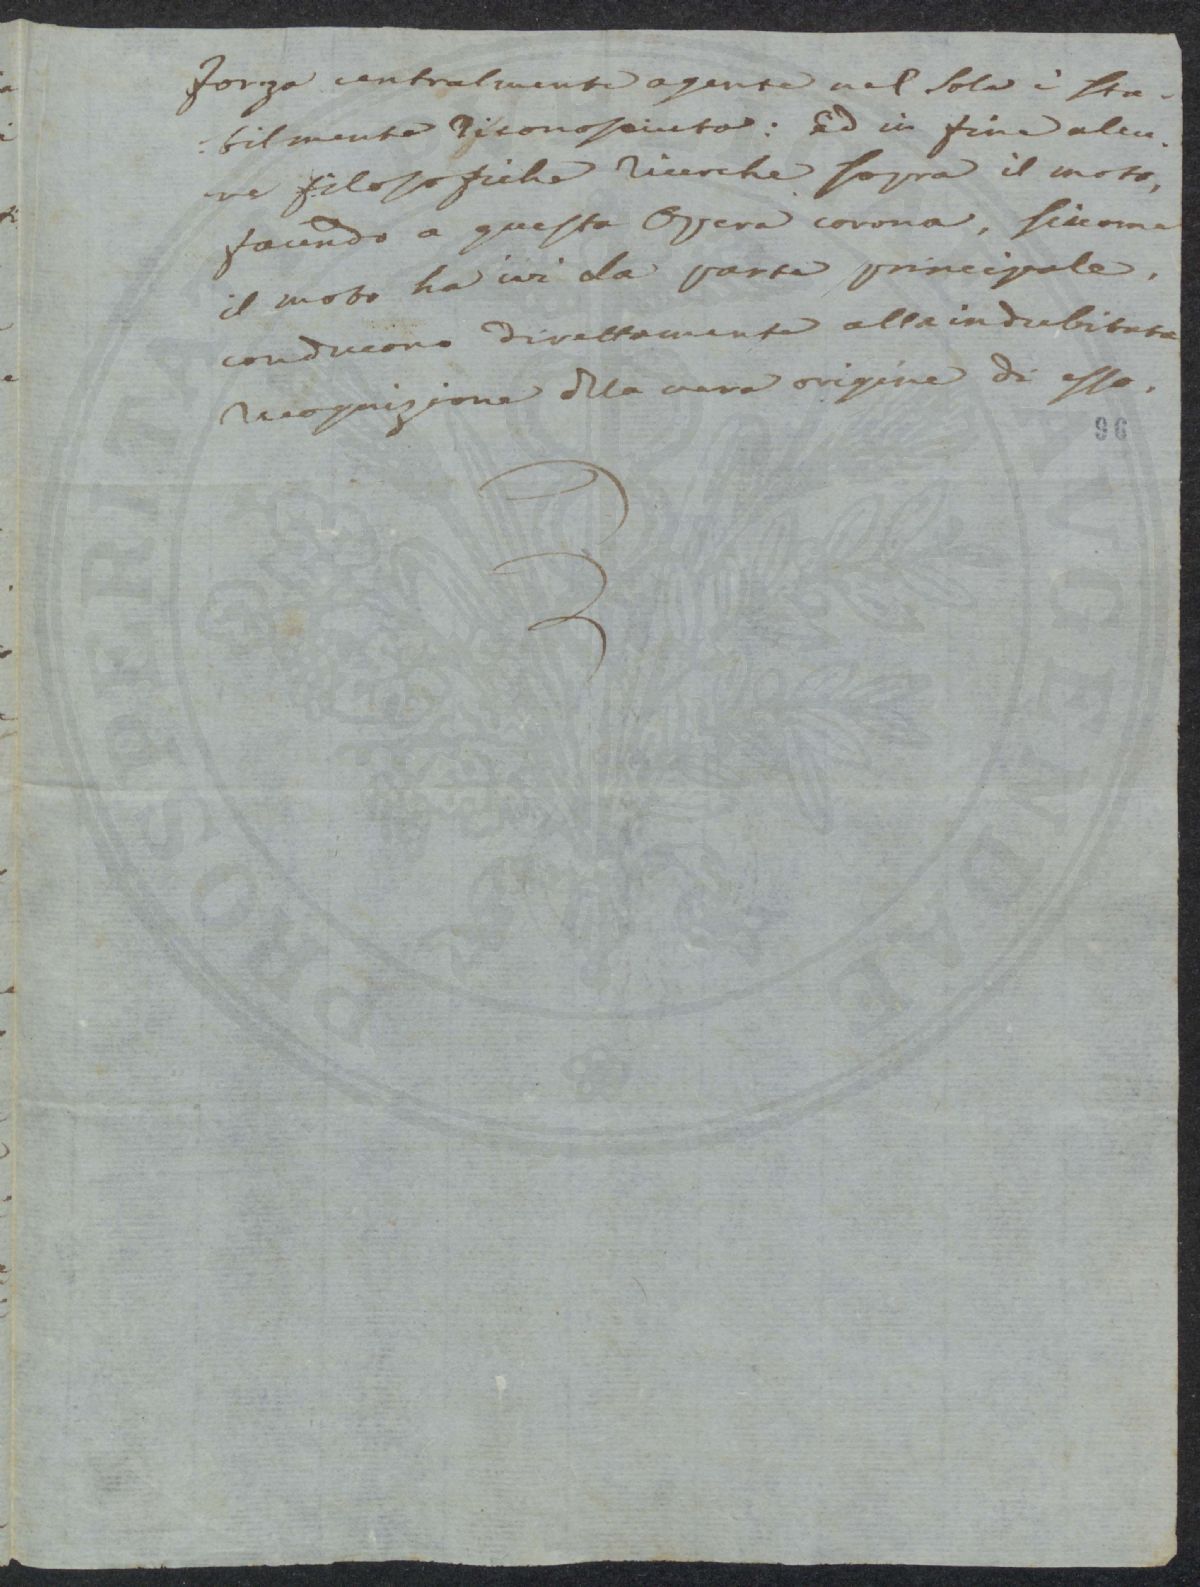 forza centralmente agente nel Sole è sta-
bilmente riconosciuta: ed in fine alcu-
ne filosofiche ricerche sopra il moto,
facendo a questa Opera corona, siccome
il moto ha ivi la parte principale,
conducono direttamente alla indubitata
recognizione della vera origine di esso.
96
PROSPERITATI AVGENDAE